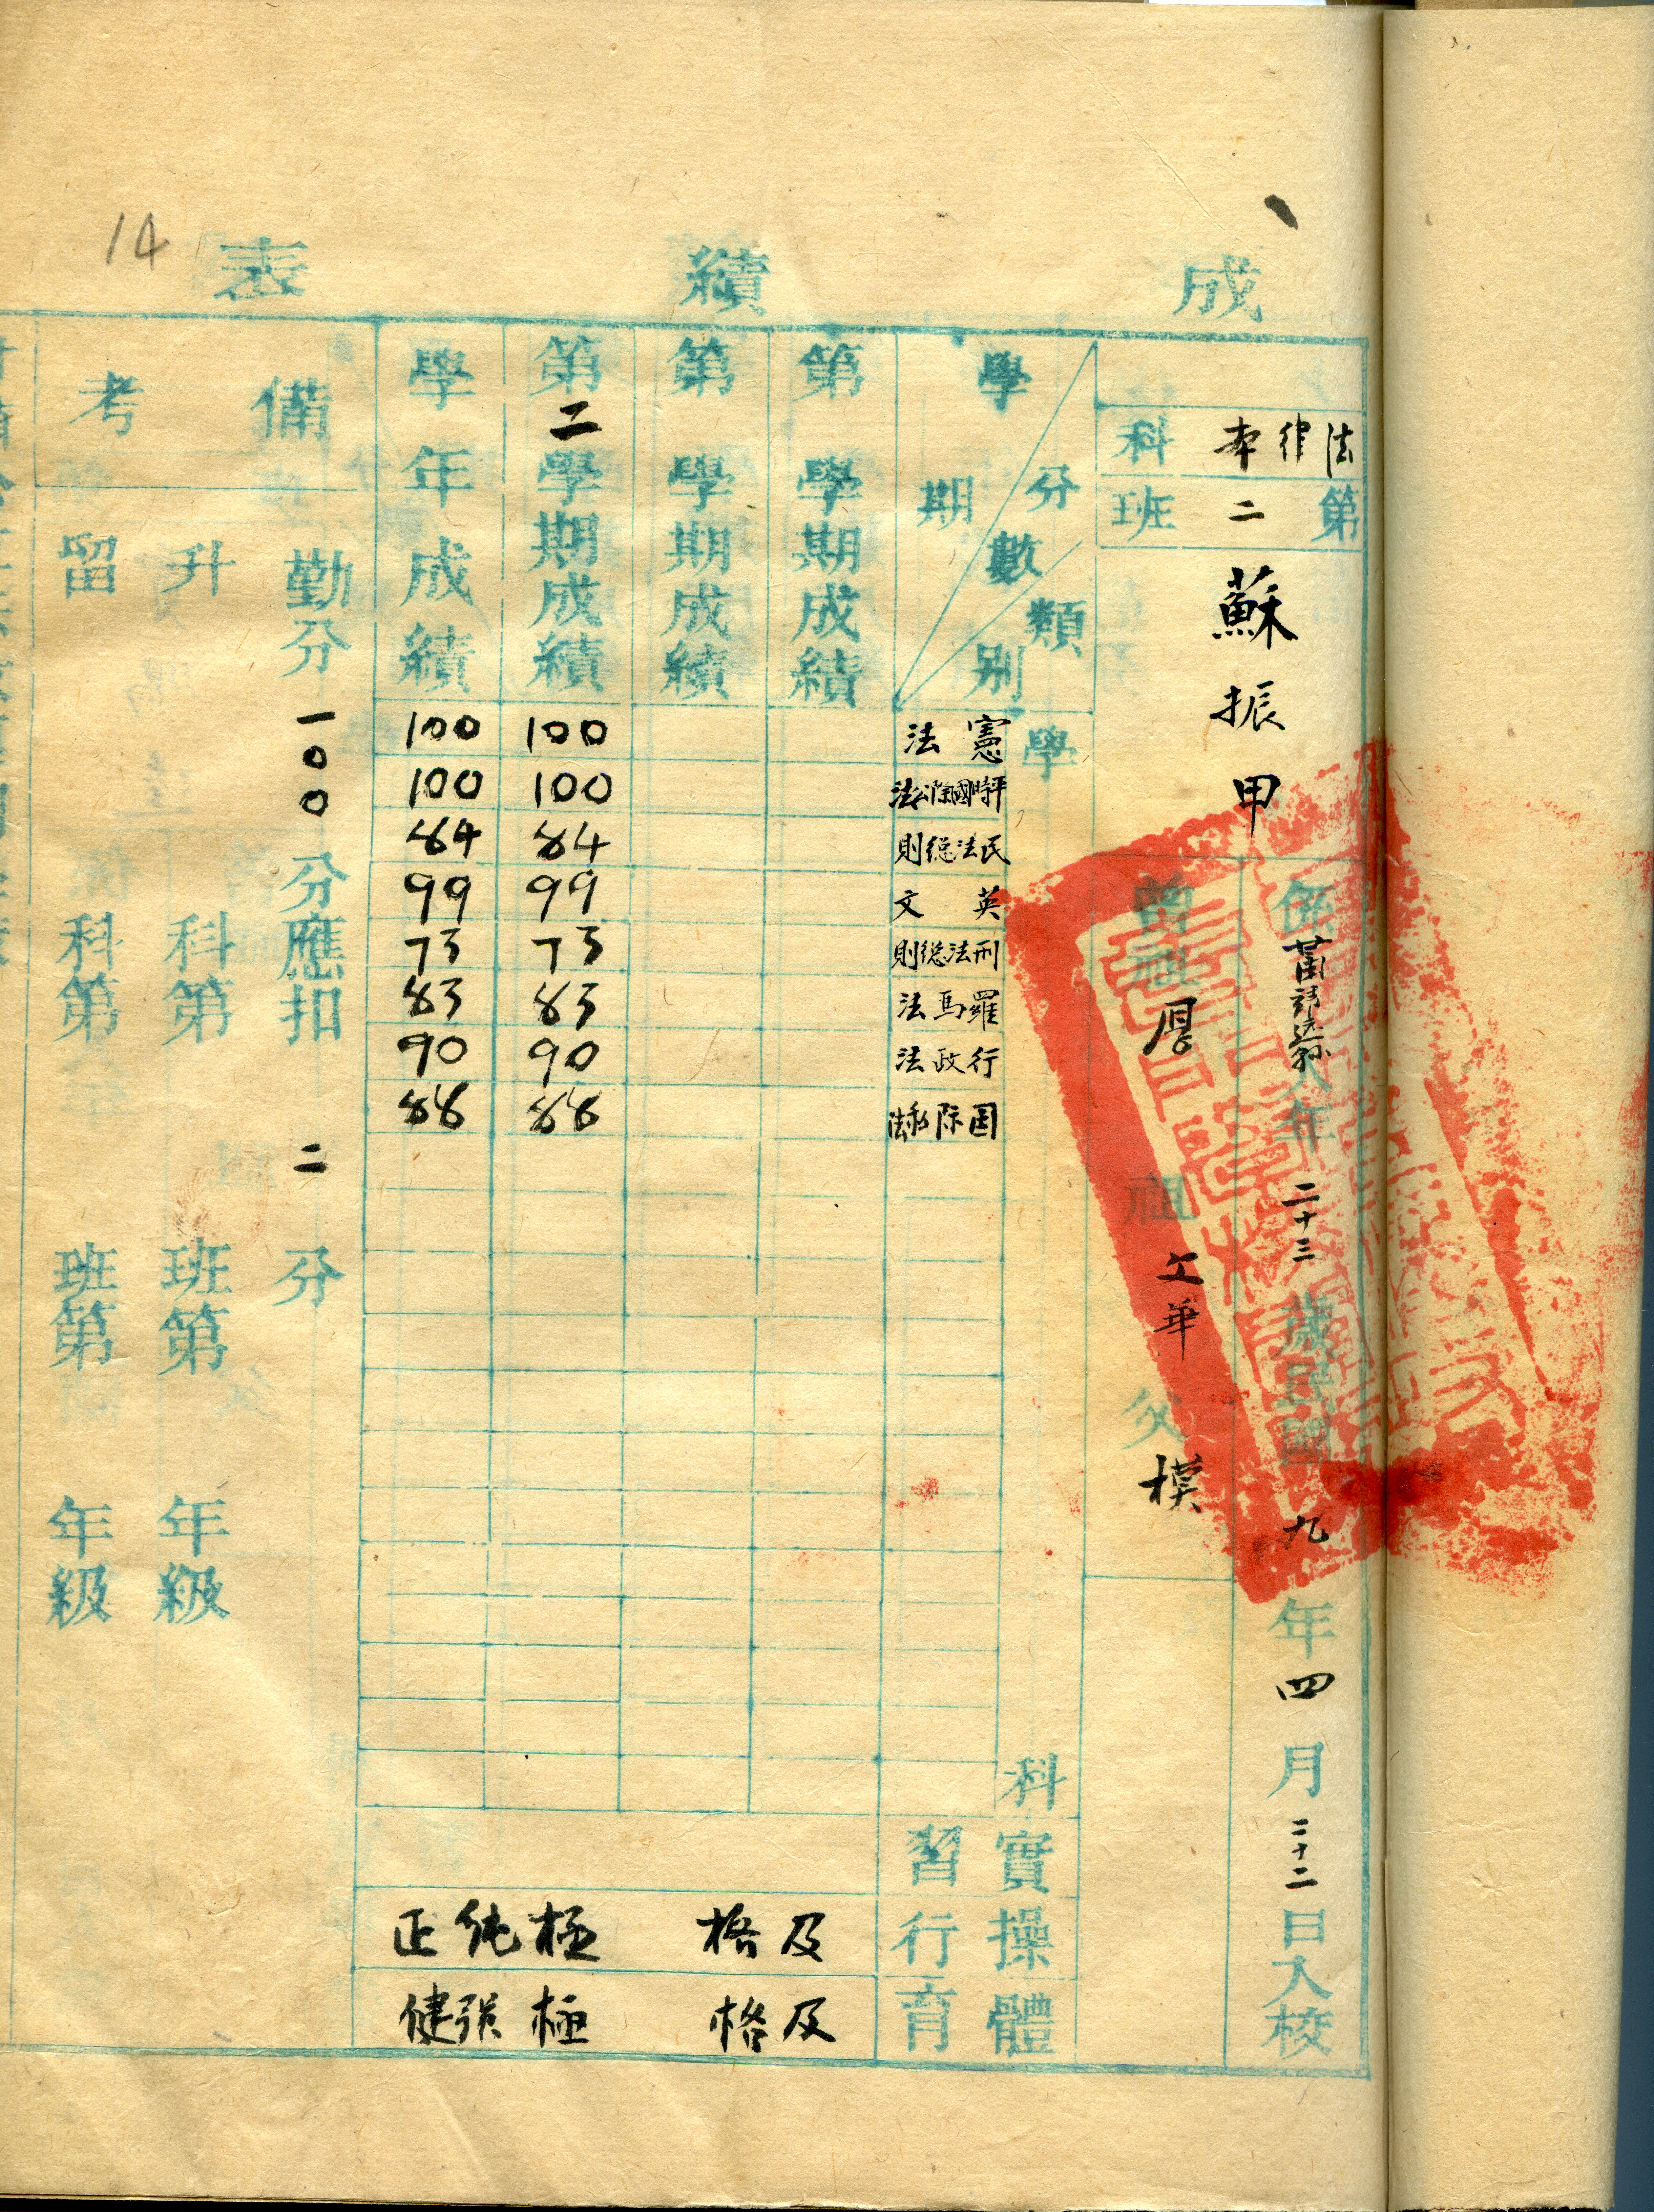 14
成績表
法律本科
第二班
蘇振甲
係 人年二十三歲民國九年四月二十二日入校
曾祖厚
祖文華
父模
學期
分數
類別
第 學期成績
第 學期成績
第二學期成績
學年成績
學科
憲法 100 100
平時國際公法 100 100
民法総則 84 84
英文 99 99
刑法総則 73 73
羅馬法 83 83
行政法 90 90
国际私法 88 88
實習
操行 及格 極純正
體育 及格 極强健
備考
勤分一〇〇分應扣二分
升 科第 班第 年級
留 科第 班第 年級